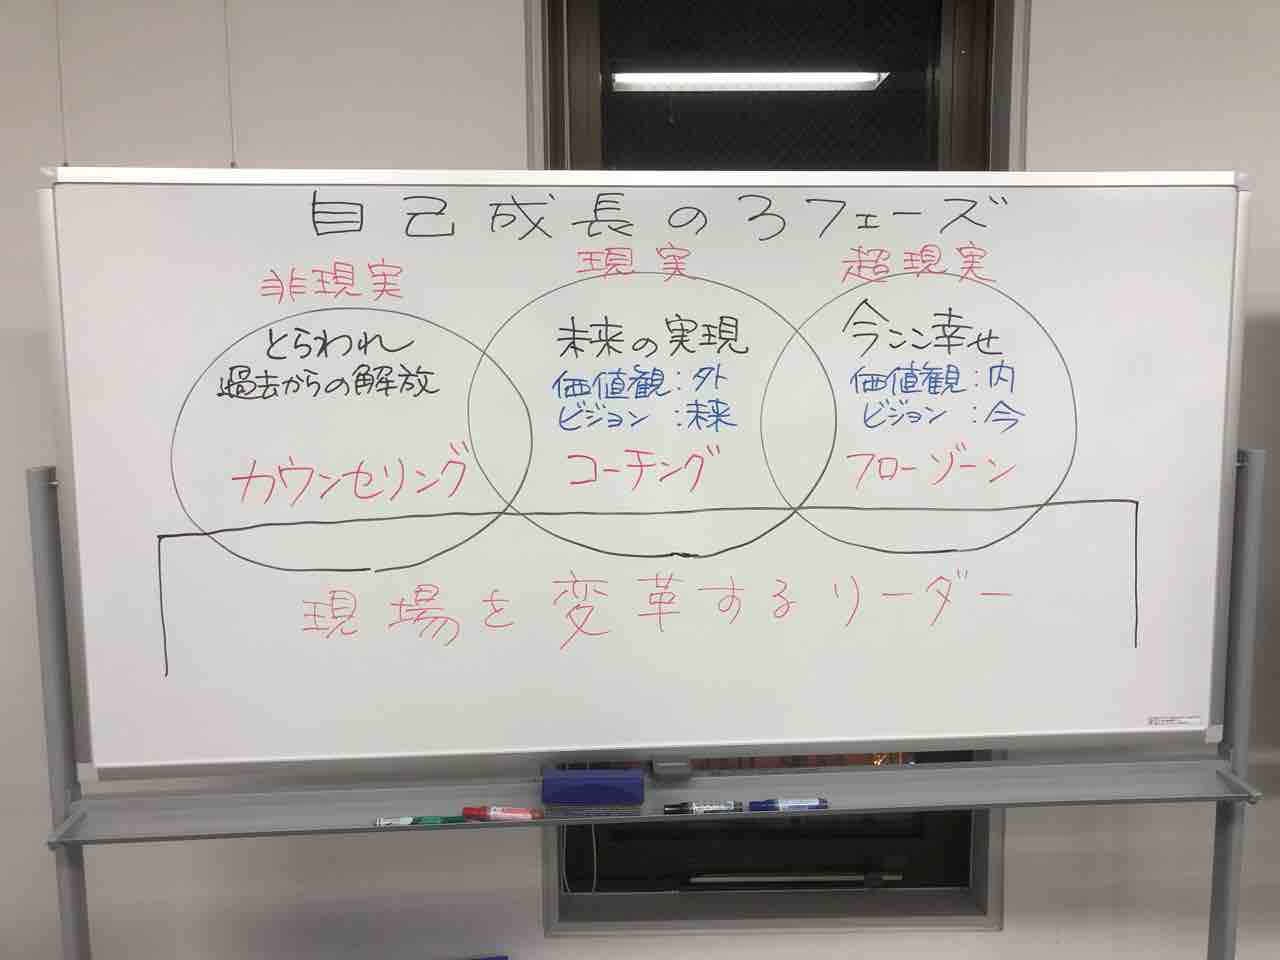 自己成長の3フェーズ
非現実
とらわれ
過去からの解放
カウンセリング
現実
未来の実現
価値観:外
ビジョン:未来
コーチング
超現実
今ここ幸せ
価値観:内
ビジョン:今
フローゾーン
現場を変革するリーダー